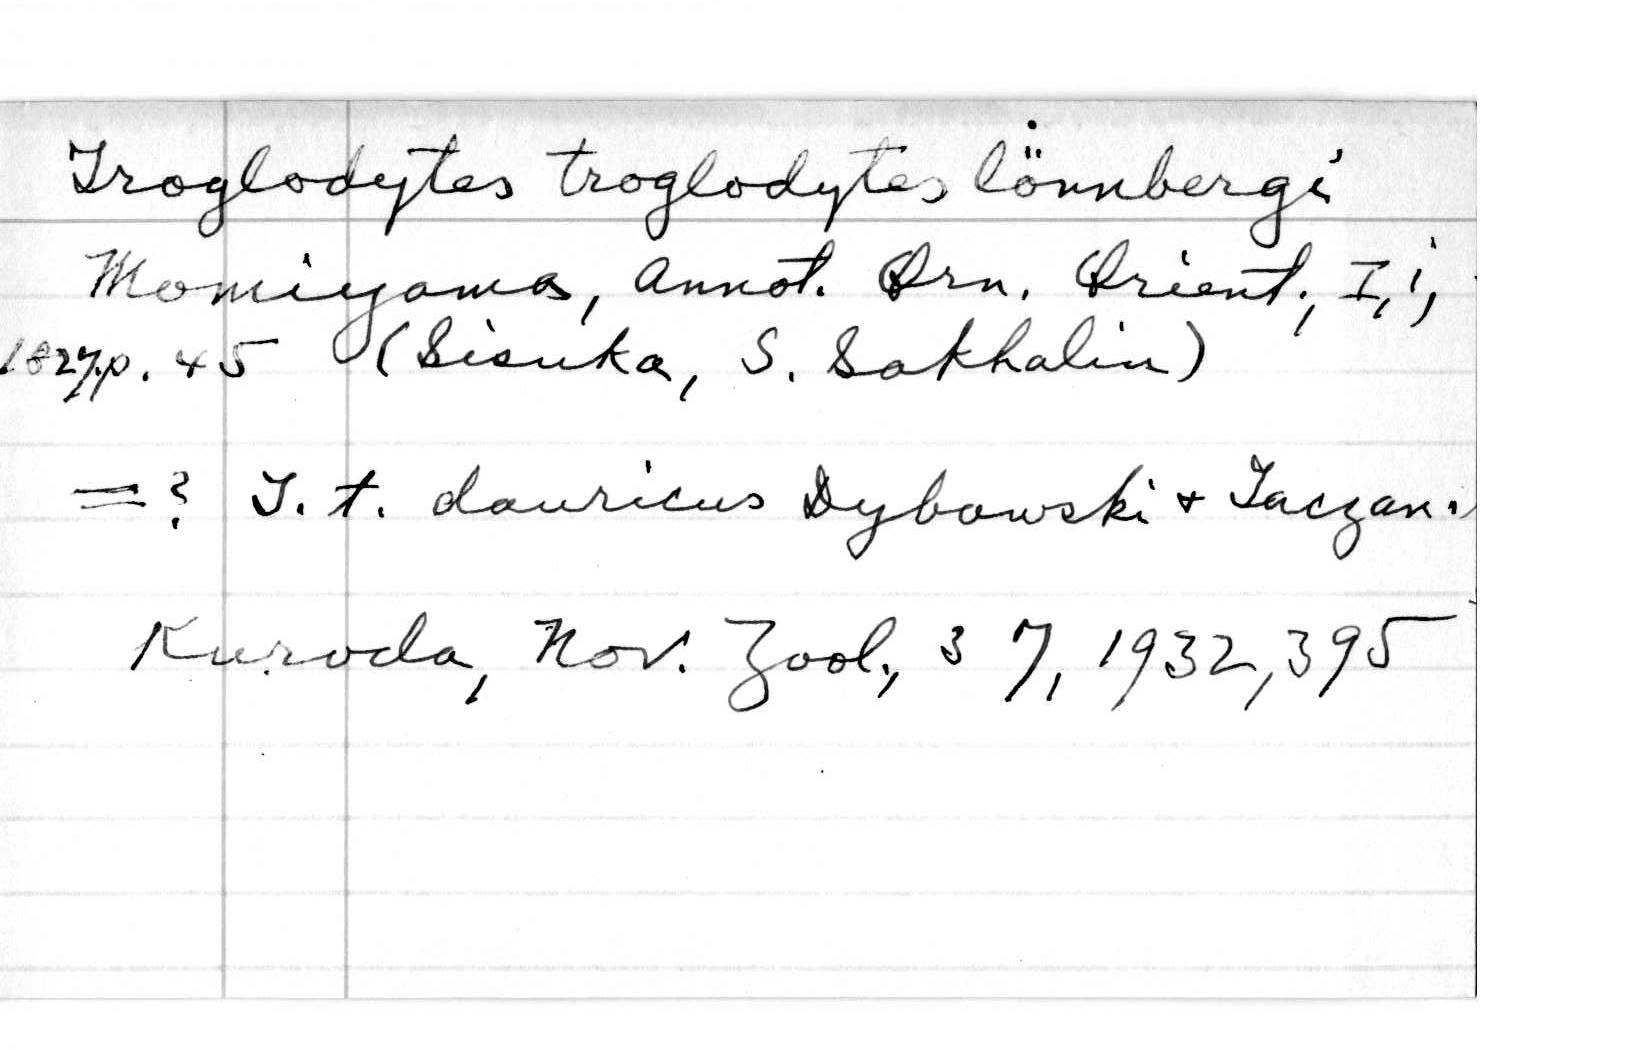 Troglodytes troglodytes lönnbergi
Momiyama, Annot. Orn. Orient., I, i,
1827, p. 45 (Sisuka, S. Sakhalin)
=? T. t. dauricus Dybowski + Taczan.
Kuroda, Nov. Zool., 37, 1932, 395